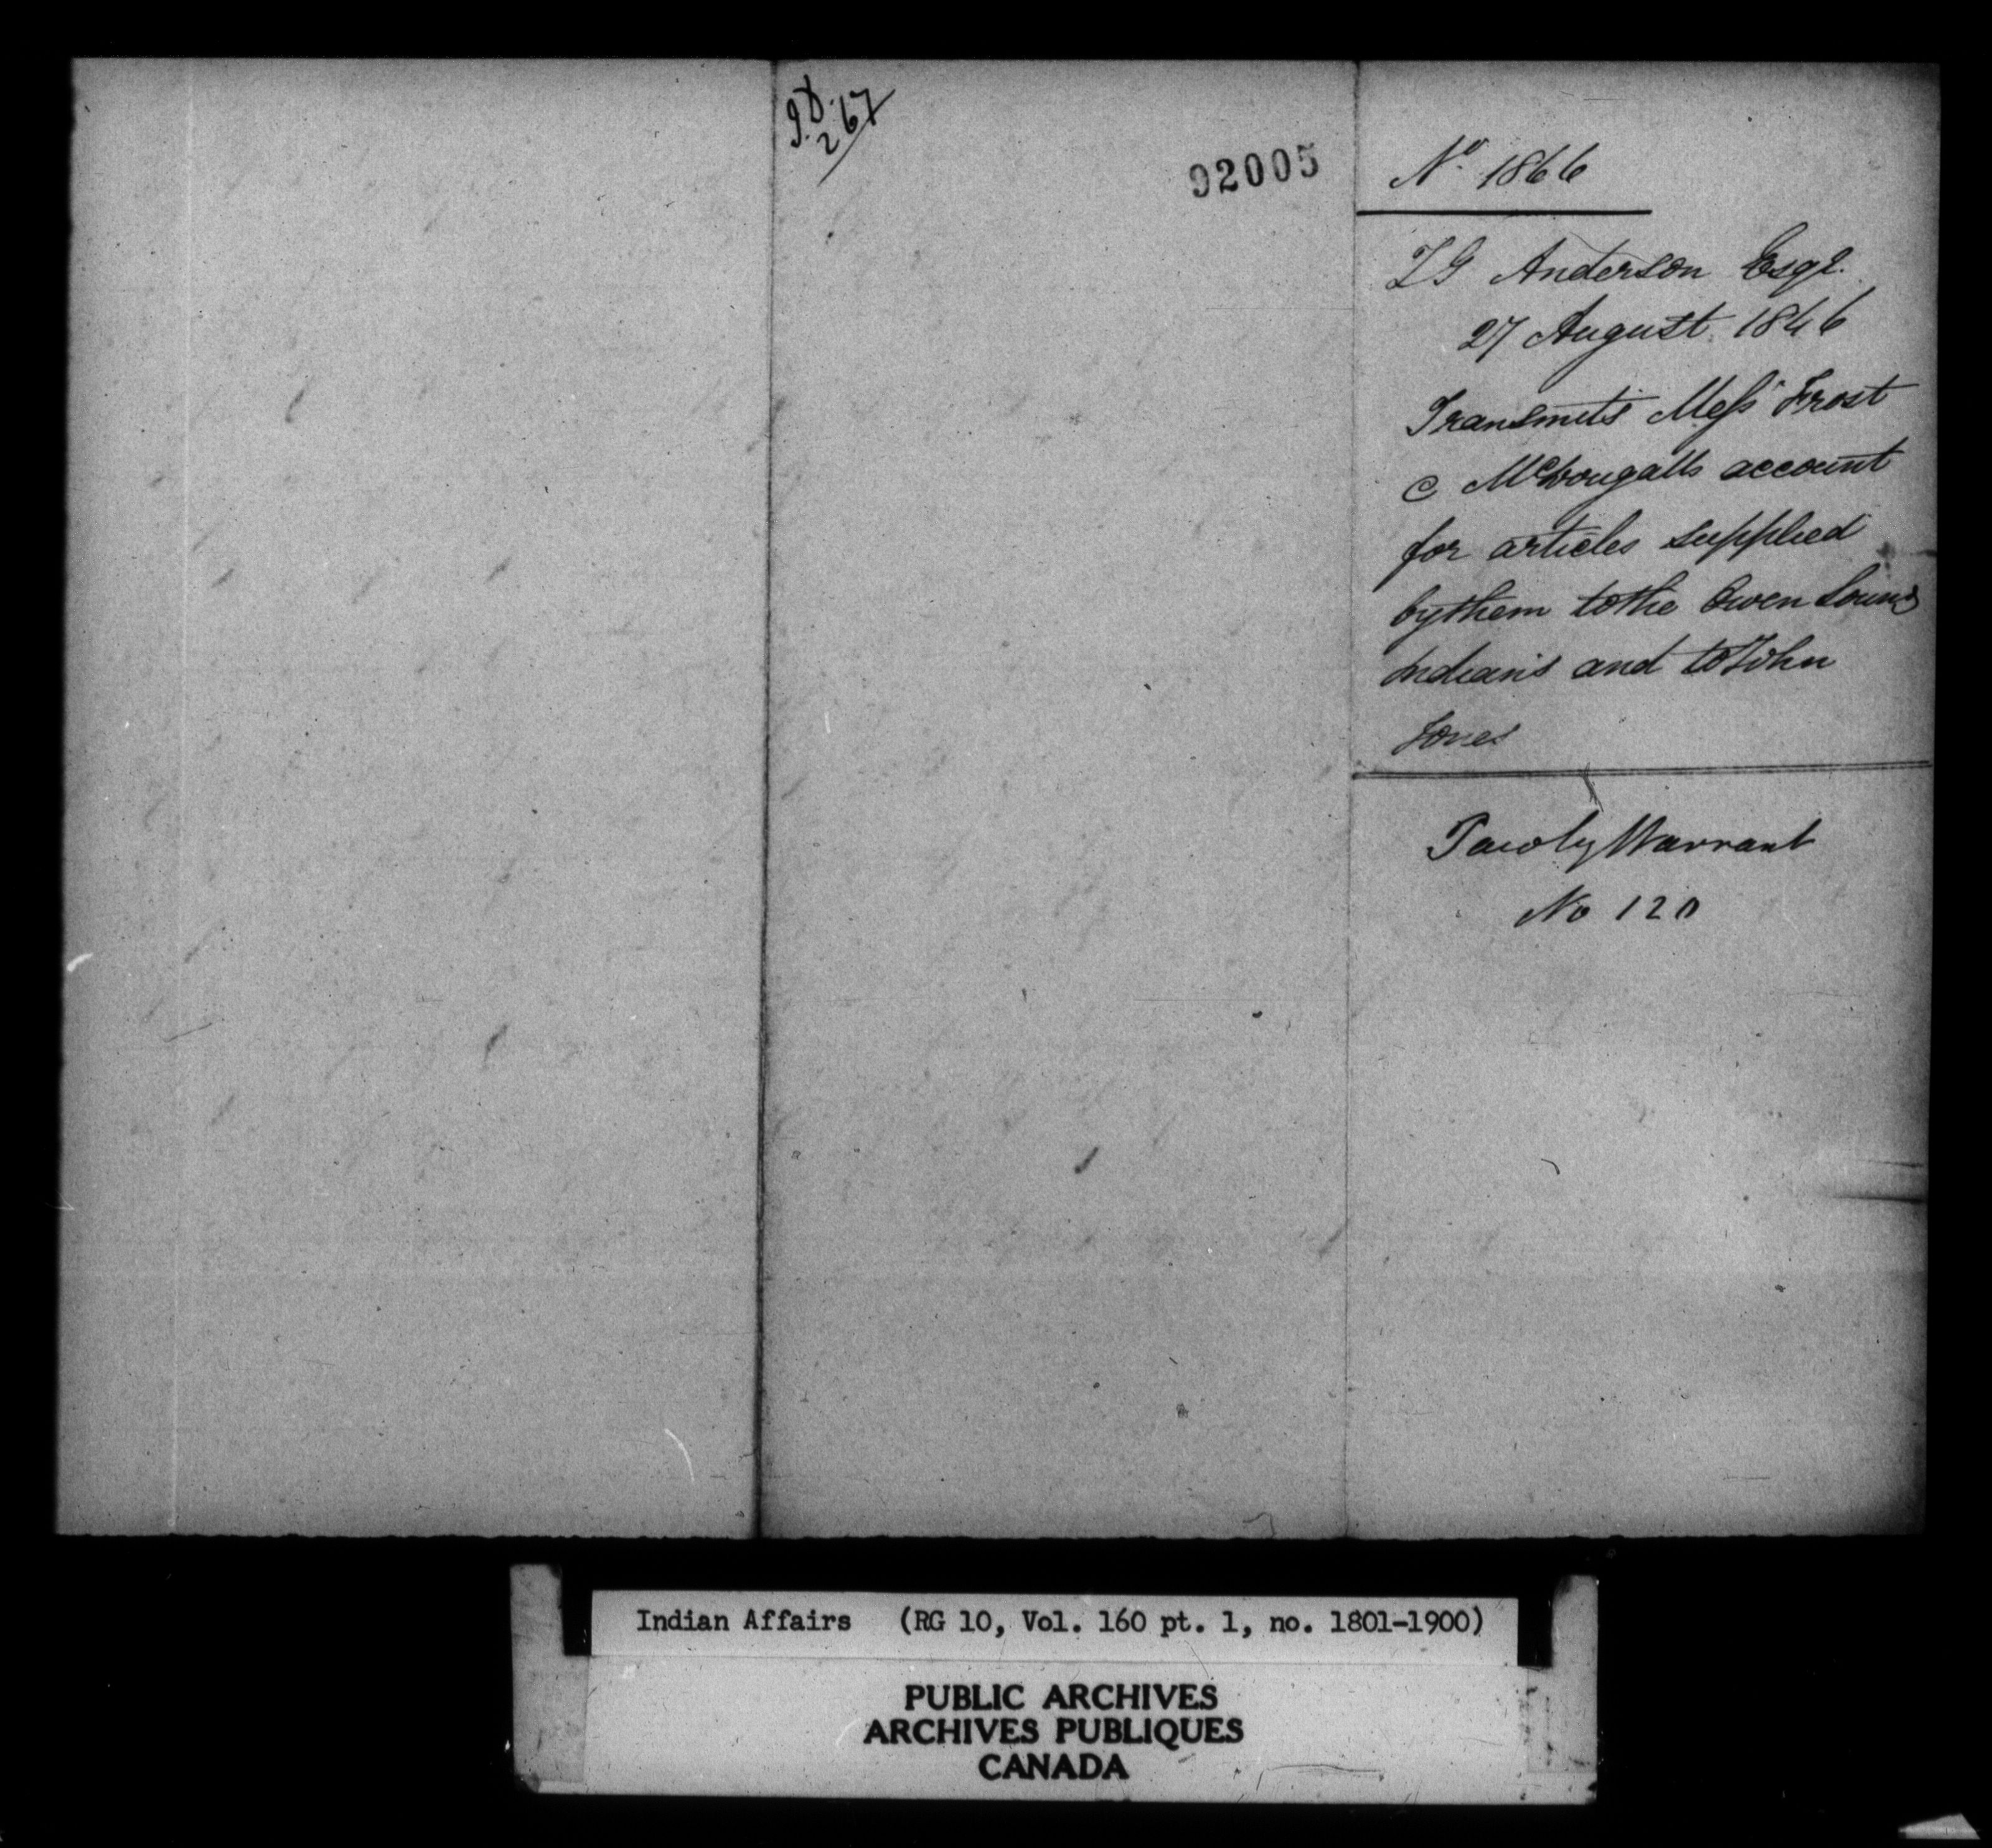 267
92005
No. 1866
T G Anderson Esqr.
27 August 1846
Transmits Mess Frost
& McDougalls account
for articles supplied
by them to the Owen Sound
Indians and to John
Jones
Paid by Warrant
No 120
Indian Affairs (RG 10, Vol. 160 pt. 1, no. 1801-1900)
PUBLIC ARCHIVES
ARCHIVES PUBLIQUES
CANADA